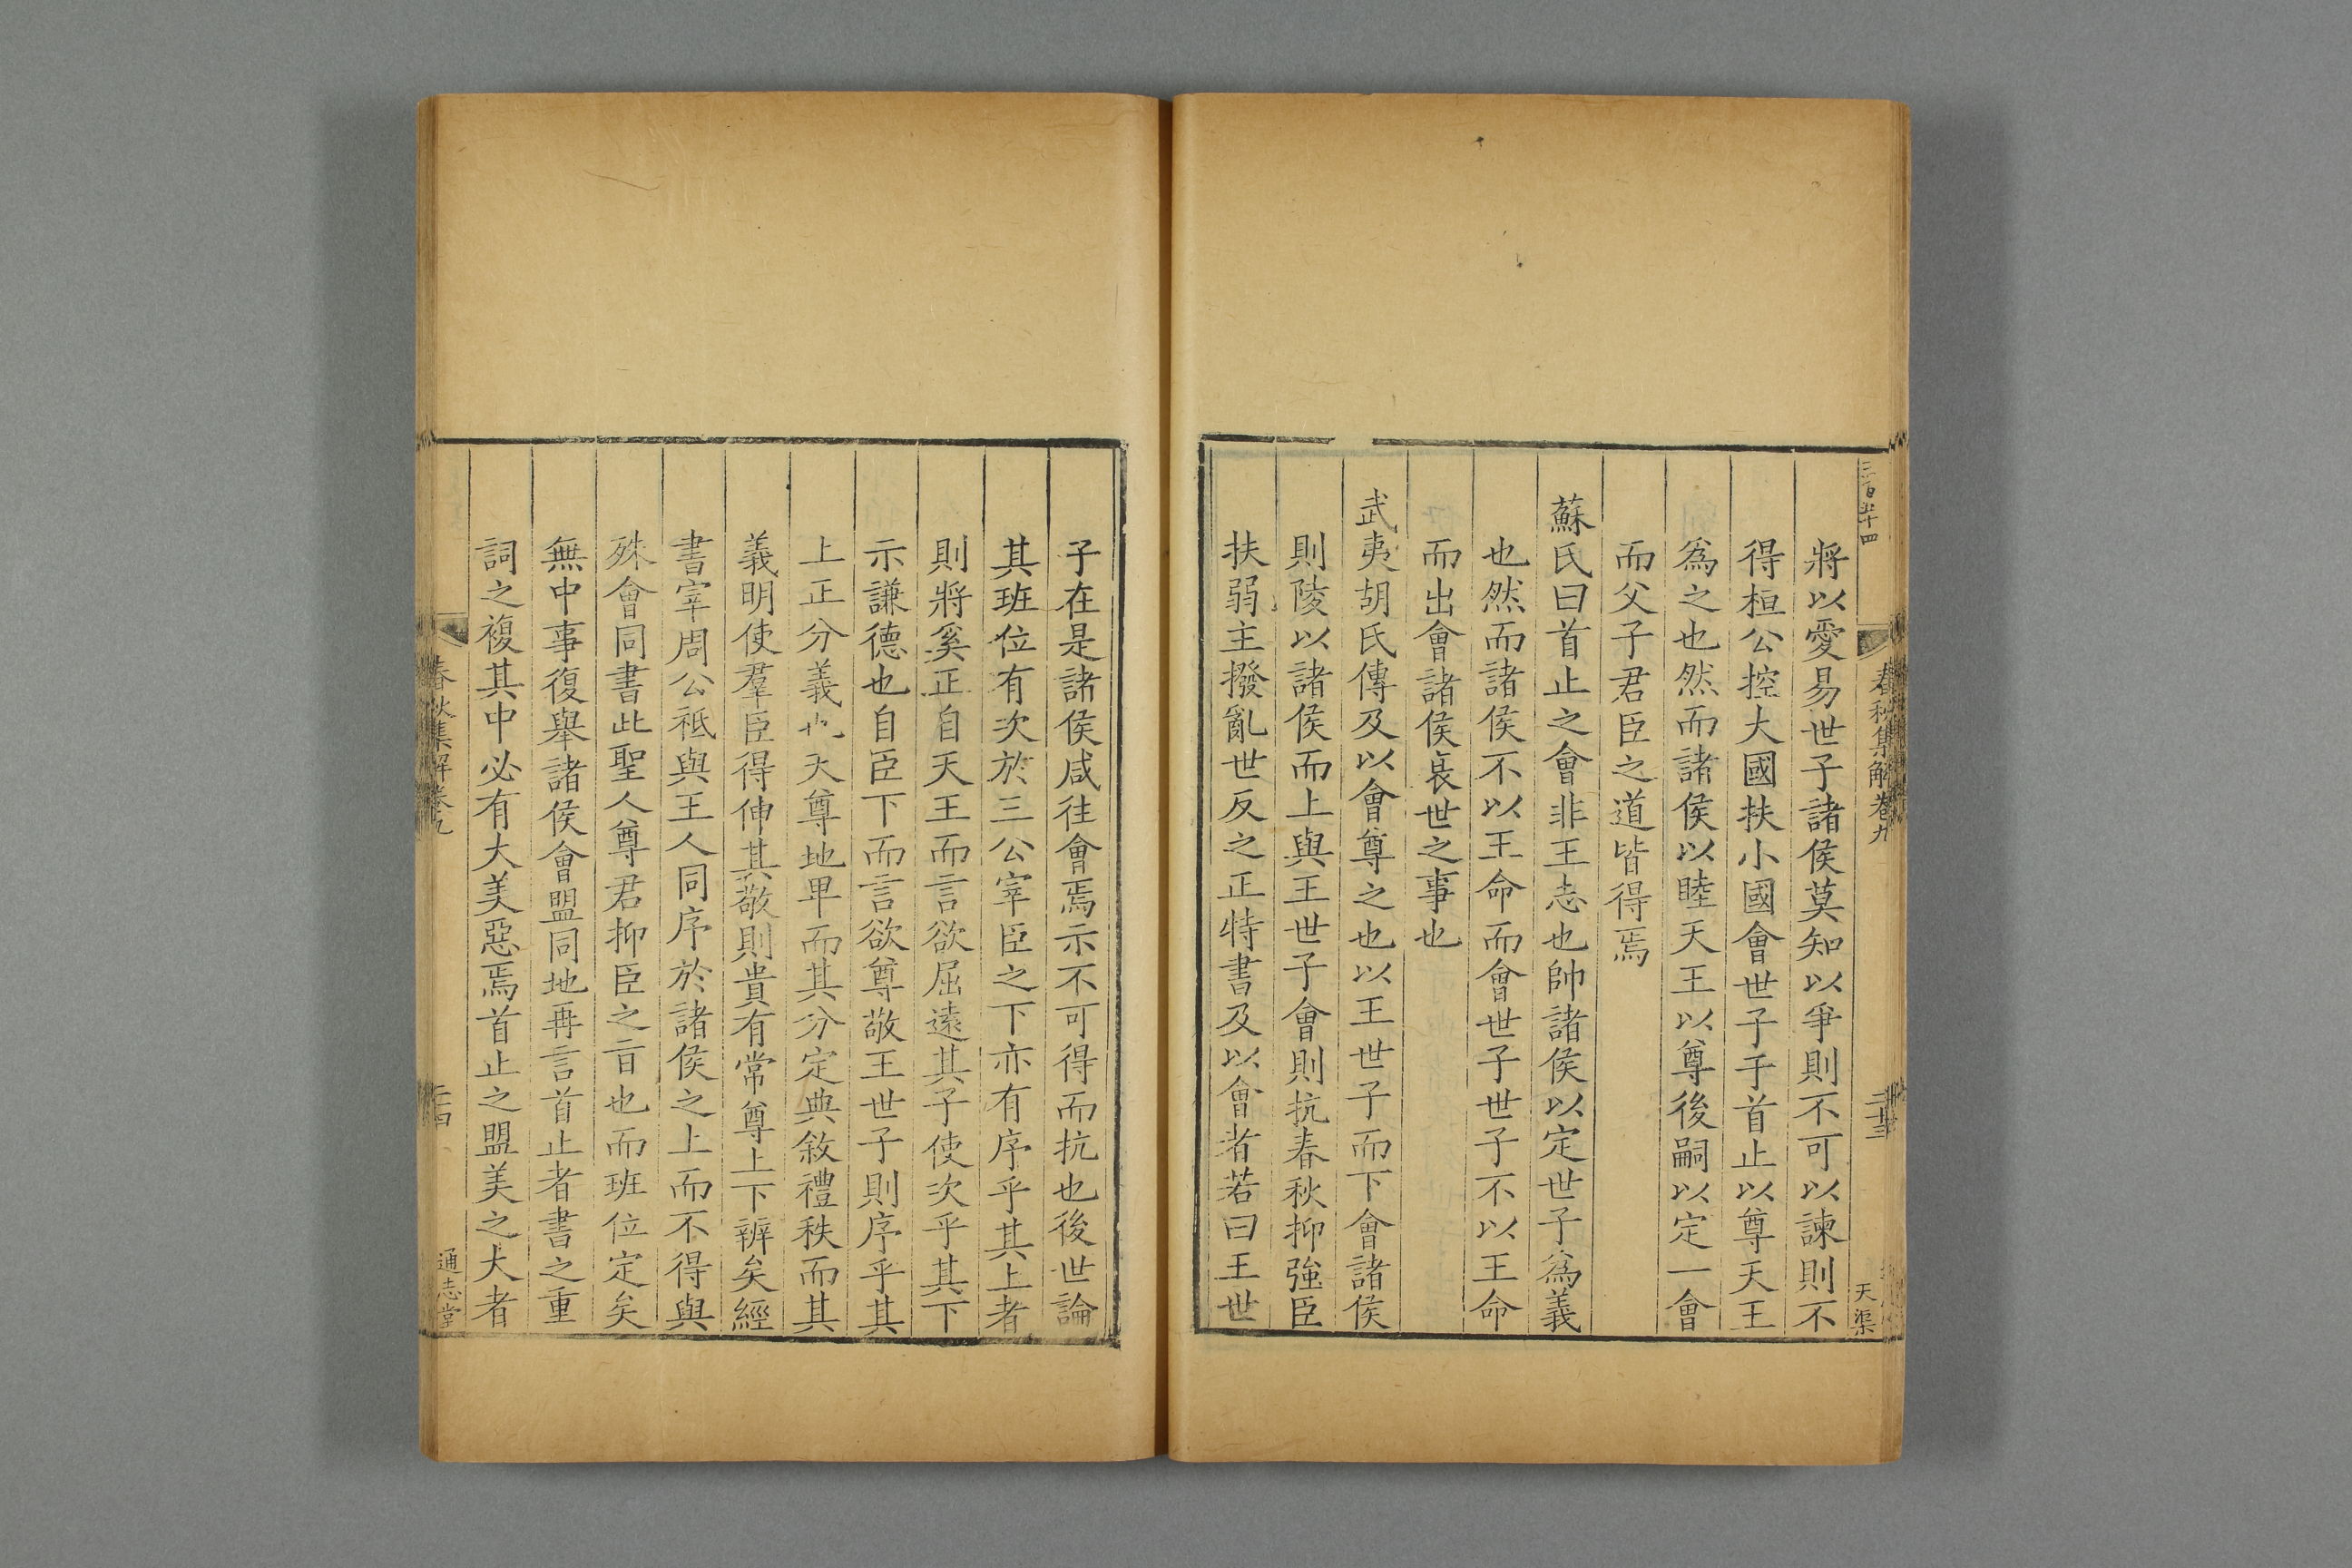 三百五十四
春秋集解卷九
二十三
天渠
將以愛易世子諸侯莫知以爭則不可以諫則不
得桓公控大國扶小國會世子于首止以尊天王
爲之也然而諸侯以睦天王以尊後嗣以定一會
而父子君臣之道皆得焉
蘇氏曰首止之會非王志也帥諸侯以定世子爲義
也然而諸侯不以王命而會世子世子不以王命
而出會諸侯衰世之事也
武夷胡氏傳及以會尊之也以王世子而下會諸侯
則陵以諸侯而上與王世子會則抗春秋抑強臣
扶弱主撥亂世反之正特書及以會者若曰王世
子在是諸侯咸往會焉示不可得而抗也後世論
其班位有次於三公宰臣之下亦有序乎其上者
則將奚正自天王而言欲屈遠其子使次乎其下
示謙德也自臣下而言欲尊敬王世子則序乎其
上正分義也天尊地卑而其分定典敘禮秩而其
義明使羣臣得伸其敬則貴有常尊上下辨矣經
書宰周公祗與王人同序於諸侯之上而不得與
殊會同書此聖人尊君抑臣之旨也而班位定矣
無中事復舉諸侯會盟同地再言首止者書之重
詞之複其中必有大美惡焉首止之盟美之大者
春秋集解卷九
二十四
通志堂